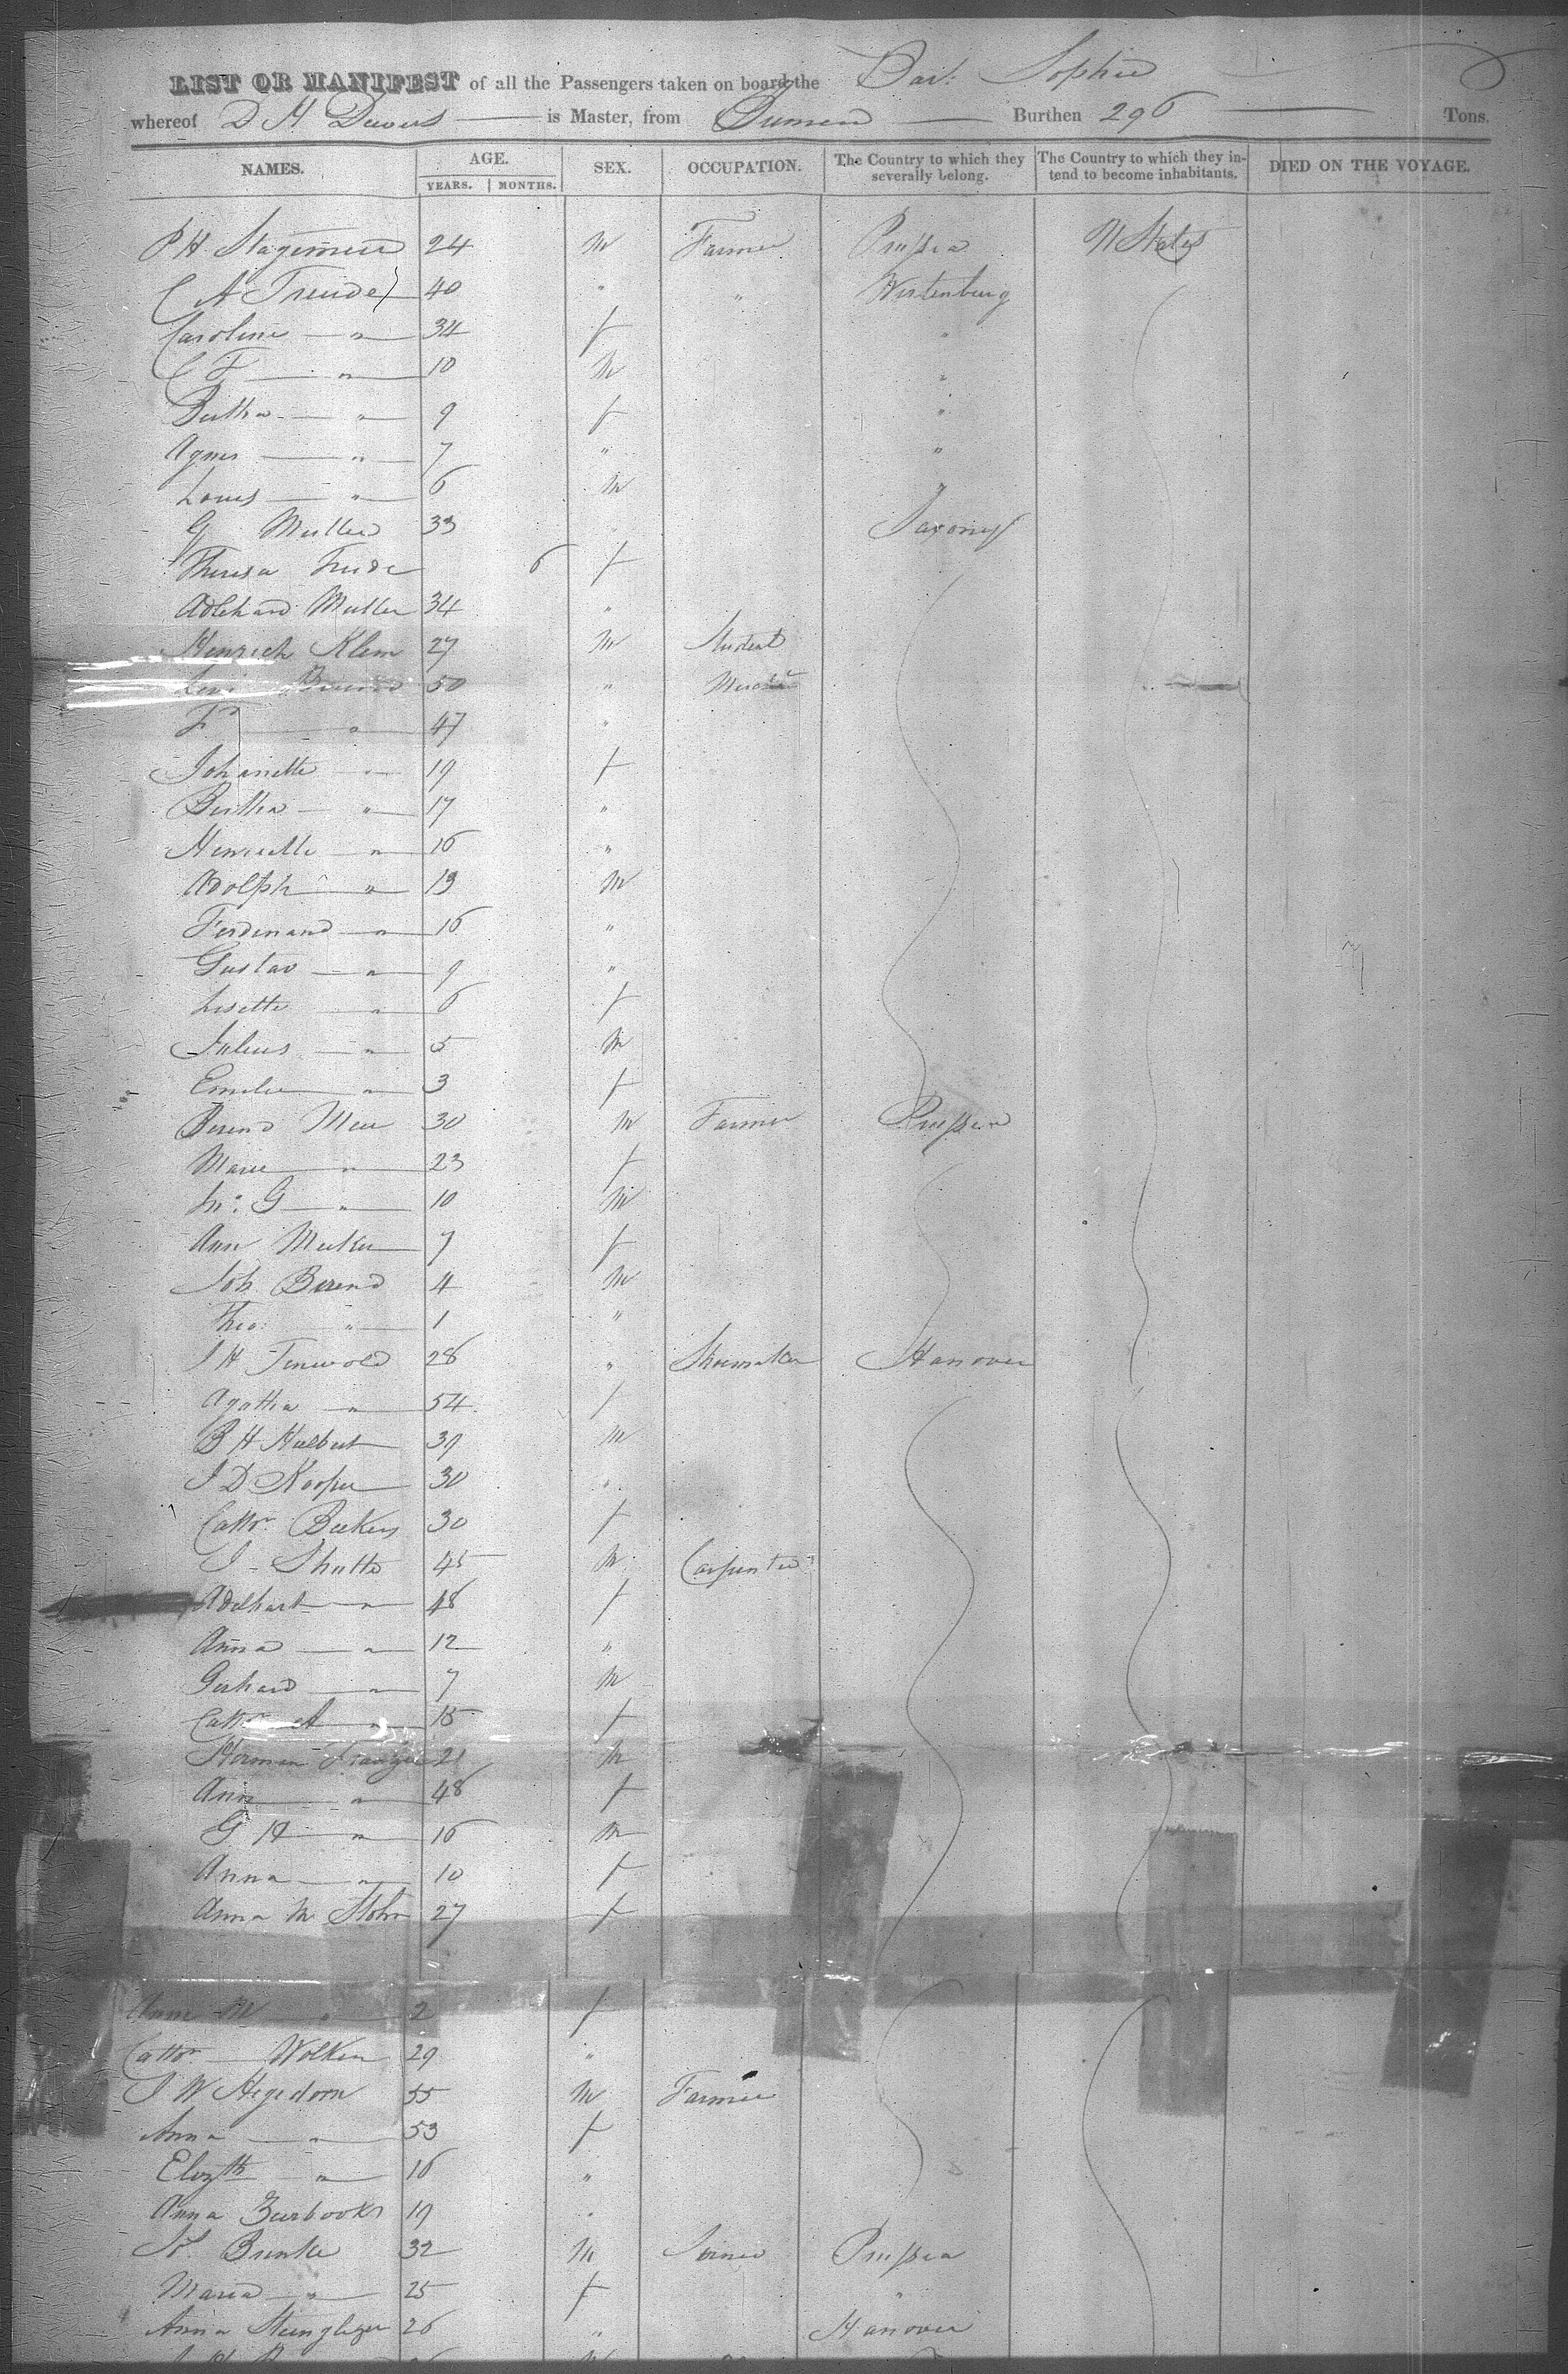 LIST OR MANIFEST of all the Passengers taken on board the Bark Sophie
whereof D H Deevers is Master, from Bremen Burthen 296 Tons.
NAMES. AGE. YEARS. MONTHS. SEX. OCCUPATION. The Country to which they severally belong. The Country to which they intend to become inhabitants. DIED ON THE VOYAGE.
P H 24 M Farmer Prussia U States
C A Treude 40 " " Wirtenburg
Caroline " 34 f "
C F " 10 M "
Bertha " 9 f "
Agnes " 7 " "
Louis " 6 M "
G Muller 33 " Saxony
Theresa Treude 6 f
Adlehard Muller 34 "
Henrich Klem 27 M Student
50 "
" 47 "
Johanette " 19 f
Bertha " 17 "
Henriette " 16 "
Adolph " 13 M
Ferdinand " 16 "
Gustav " 9 "
Lisette " 6 f
Julius " 5 M
Emilie " 3 f
Berend Meer 30 M Farmer Prussia
Marie " 23 f
G " 10 M
Ann 7 f
Joh Berend 4 M
Theo: " 1 "
J H 28 " Shoemaker Hanover
Agatha " 54 f
B H 39 M
J D Kooper 30 "
Cathr Beckers 30 f
J Shutte 45 M Carpenter
Adelhart " 48 f
Anna " 12 "
Gerhard " 7 M
Cathr A " 15 f
Herman 21 M
Ann " 48 f
G H " 16 M
Anna " 10 f
Anna M Stohr 27 f
Anne M " 2 f
Cathr Wolken 29 "
J W Hegedorn 55 M Farmer
Anna " 53 f
Elizth " 16 "
Anna Zurbooks 19 "
Brinke 32 M Prussia
Maria " 25 f "
Anna 26 " Hanover